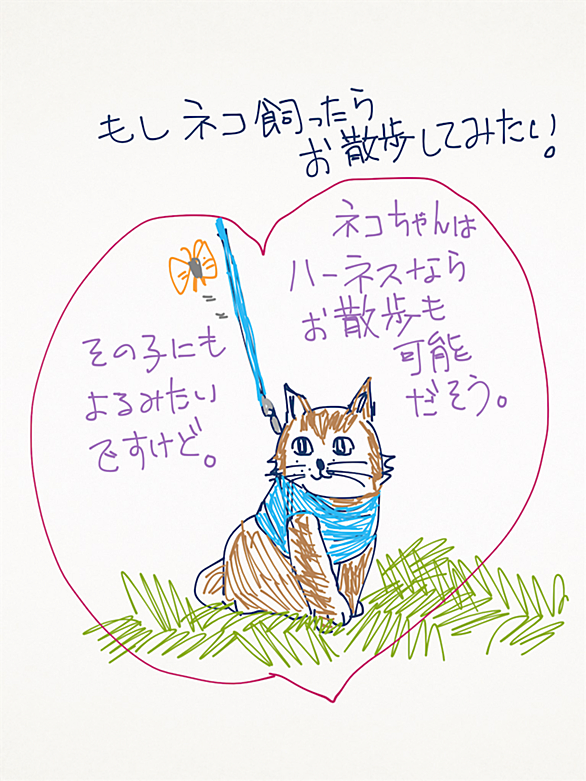 もしネコ飼ったら
お散歩してみたい!
ネコちゃんは
ハーネスなら
お散歩も
可能
だそう。
その子にも
よるみたい
ですけど。